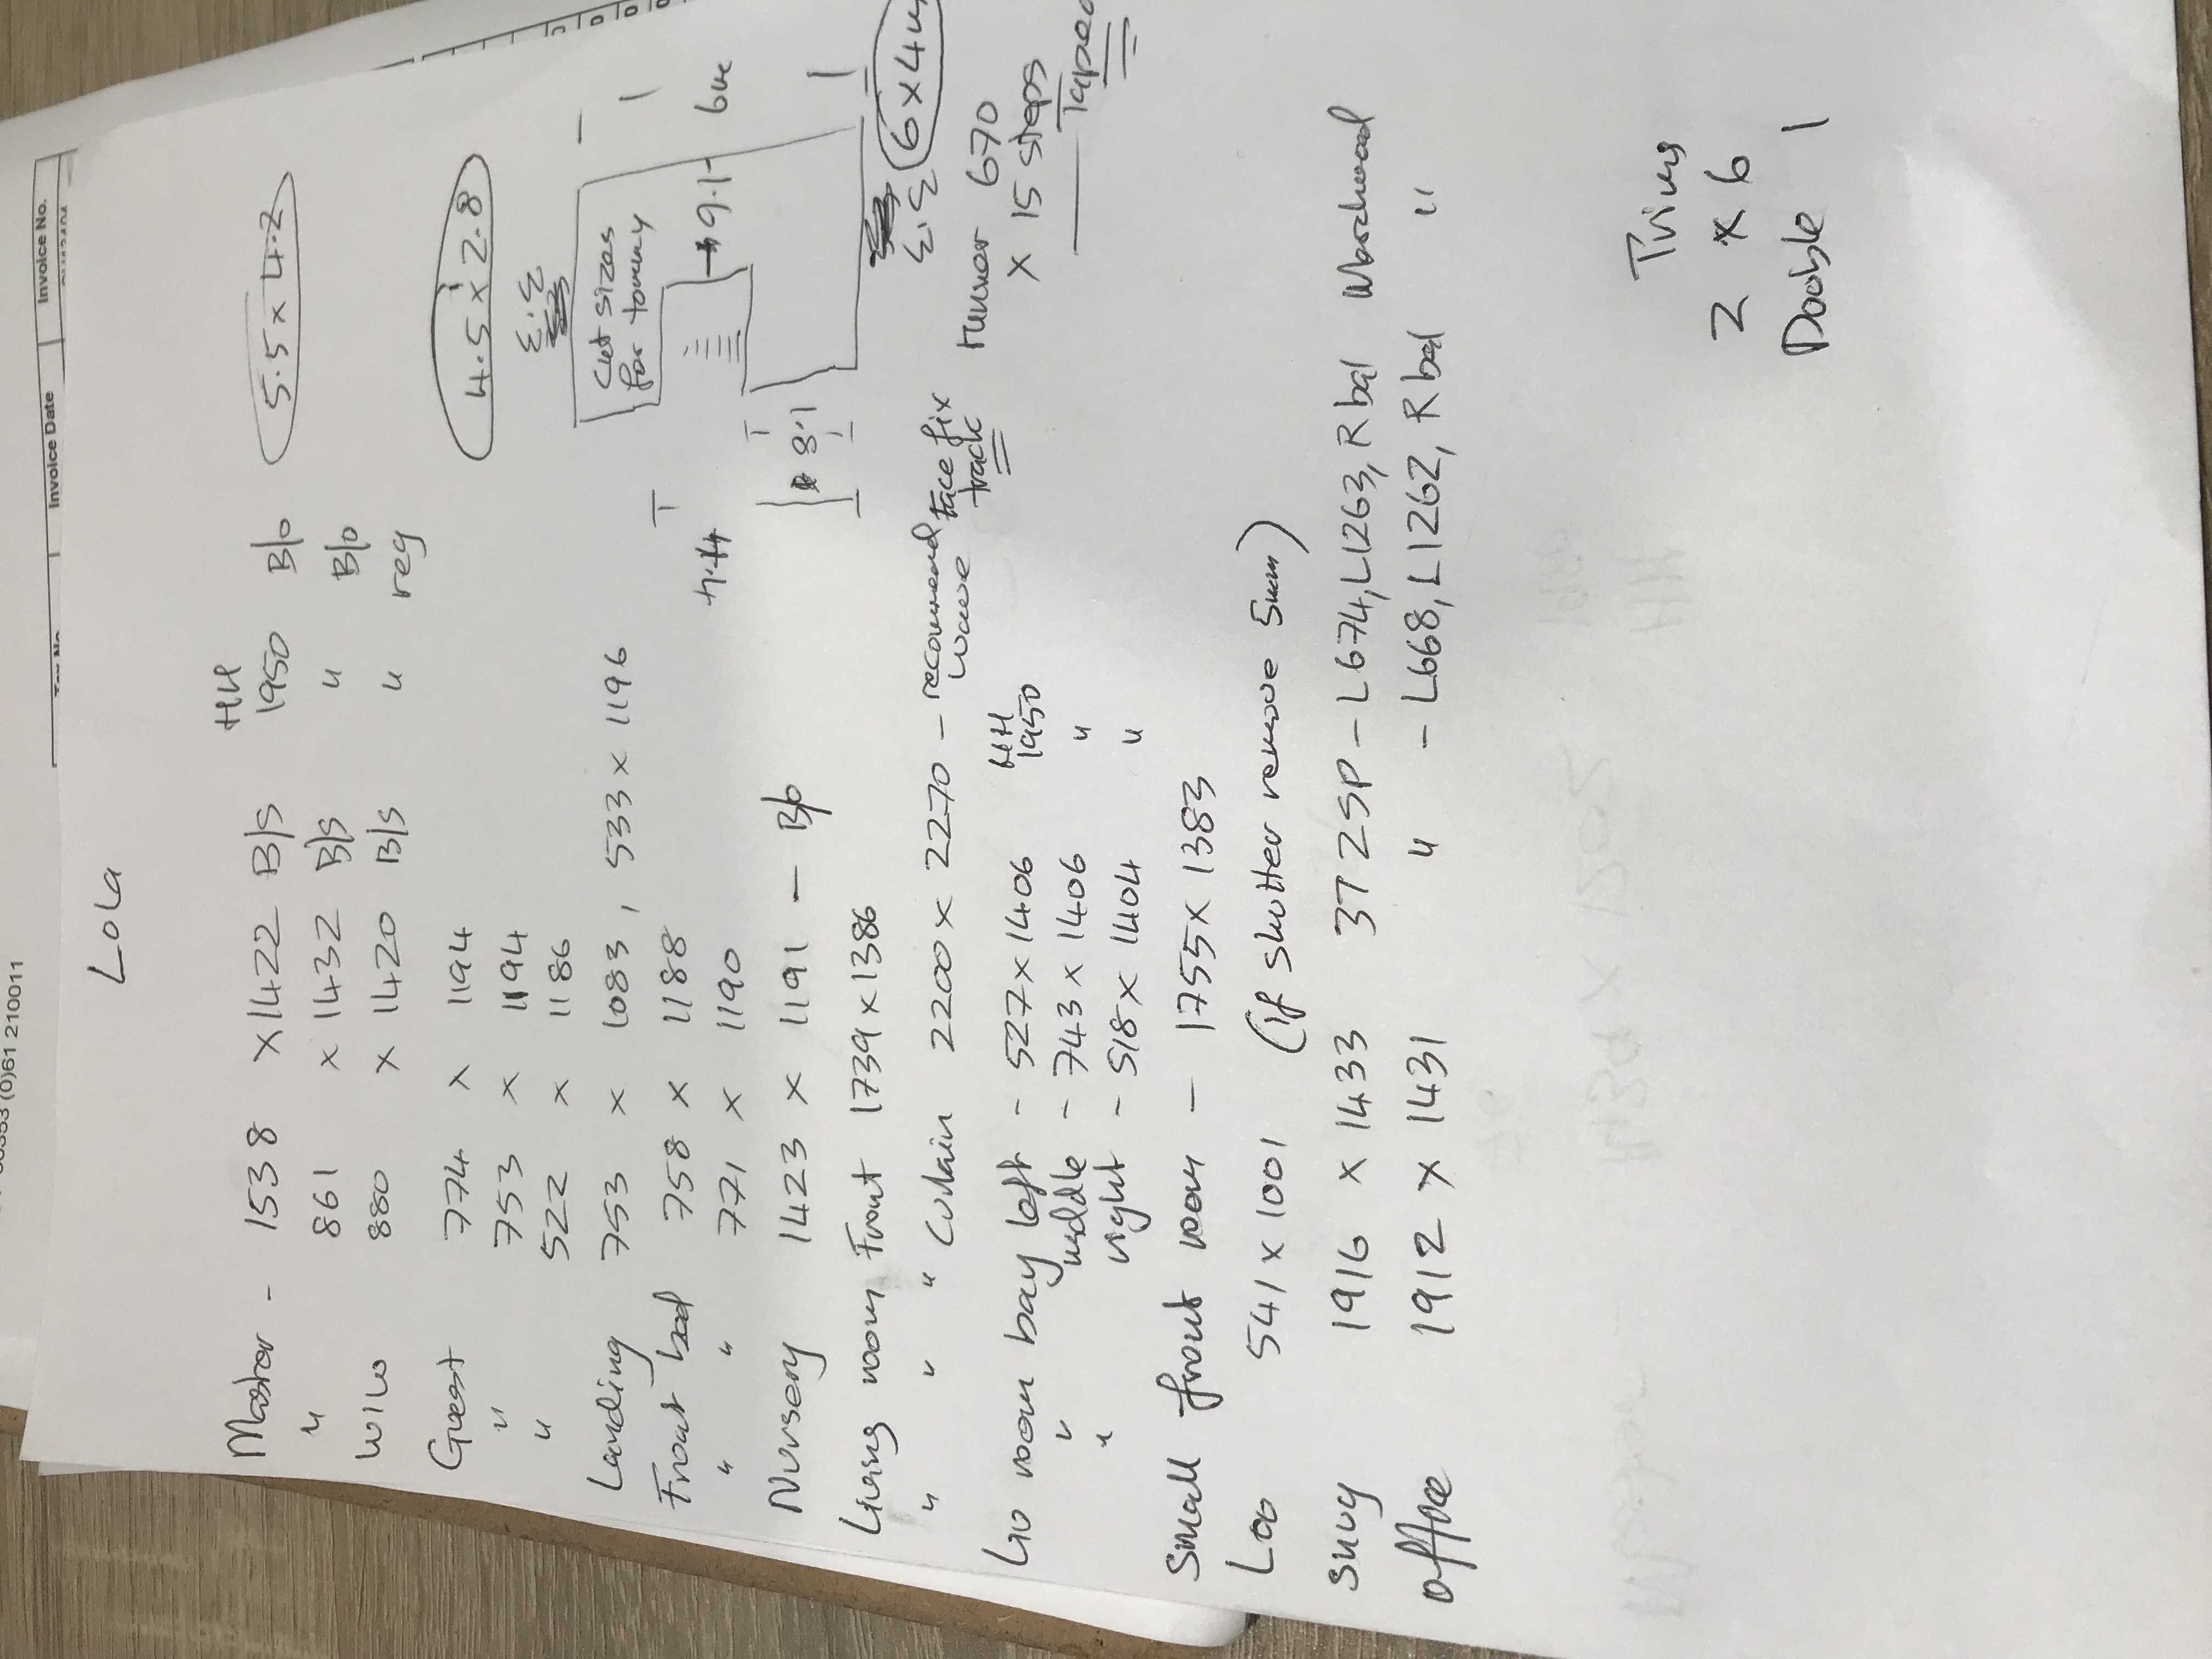 (0)61 210011
Invoice Date
Invoice No.
Lola
HH
Master - 1538 x 1422 B/S 1950 B/o 5.5 x 4.2
" 861 x 1432 B/S " B/o
Will 880 x 1420 B/S " reg
Guest 774 x 1194 4.5 x 2.8
" 753 x 1194
" 522 x 1186
Cut sizes
for tommy
Landing 753 x 1083, 533 x 1196
Front bed 758 x 1188 4.4
" " 771 x 1190 9.1
Nursery 1423 x 1191 - B/o 3.1
Living room Front 1739 x 1386
6 x 4m
" " " Curtain 2200 x 2270 - recommend face fix
wave track
runner 670
x 15 steps
Taped
HH
Liv room bay left - 527 x 1406 1950
" middle - 743 x 1406 "
" right - 518 x 1404 "
Small front room - 1755 x 1383
Loo 541 x 1001 (if shutter remove 5mm)
Snug 1916 x 1433 3T 2SP - L674, L1263, R bal
Office 1912 x 1431 " - L668, L1262, R bal "
2 x 6
Double 1